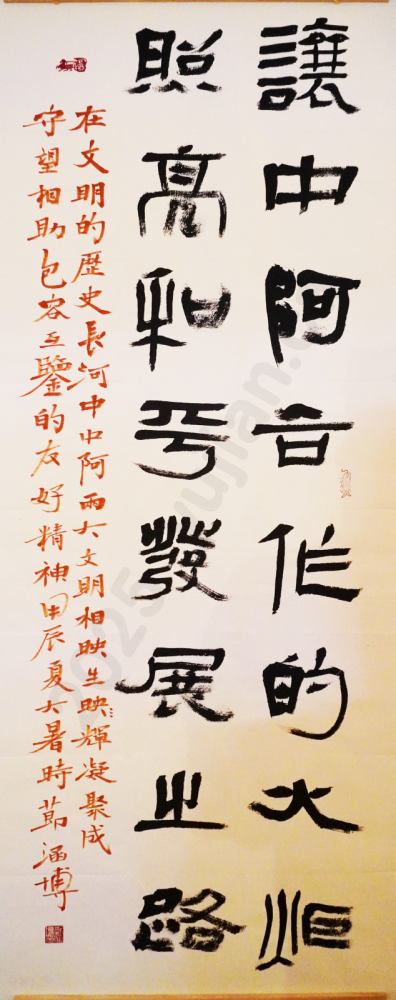 讓中阿合作的火炬
照亮和平發展之路
在文明的歷史長河中中阿兩大文明相映生映輝凝聚成
守望相助包容互鑒的友好精神甲辰夏大暑時節涵博